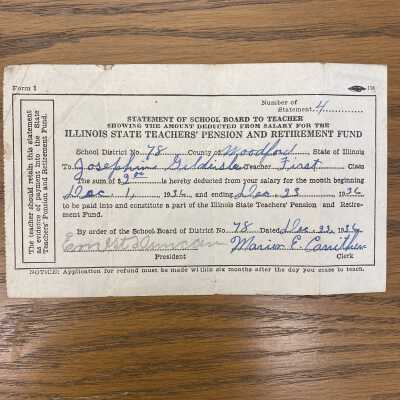 Form 1
Number of
Statement 4
STATEMENT OF SCHOOL BOARD TO TEACHER
SHOWING THE AMOUNT DEDUCTED FROM SALARY FOR THE
ILLINOIS STATE TEACHERS' PENSION AND RETIREMENT FUND
School District No. 78 County of Woodford State of Illinois
To Josephine Gildisle Teacher First Class
The sum of $2.00 is hereby deducted from your salary for the month beginning
Dec 1, 1936, and ending Dec. 23 1936
to be paid into and constitute a part of the Illinois State Teachers' Pension and Retire-
ment Fund.
By order of the School Board of District No. 78 Dated Dec. 23, 1936
Ernest Duncan Marion E. Carrithers
President Clerk
NOTICE: Application for refund must be made within six months after the day you cease to teach.
The teacher should retain this statement
as evidence of payment into the State
Teachers' Pension and Retirement Fund.